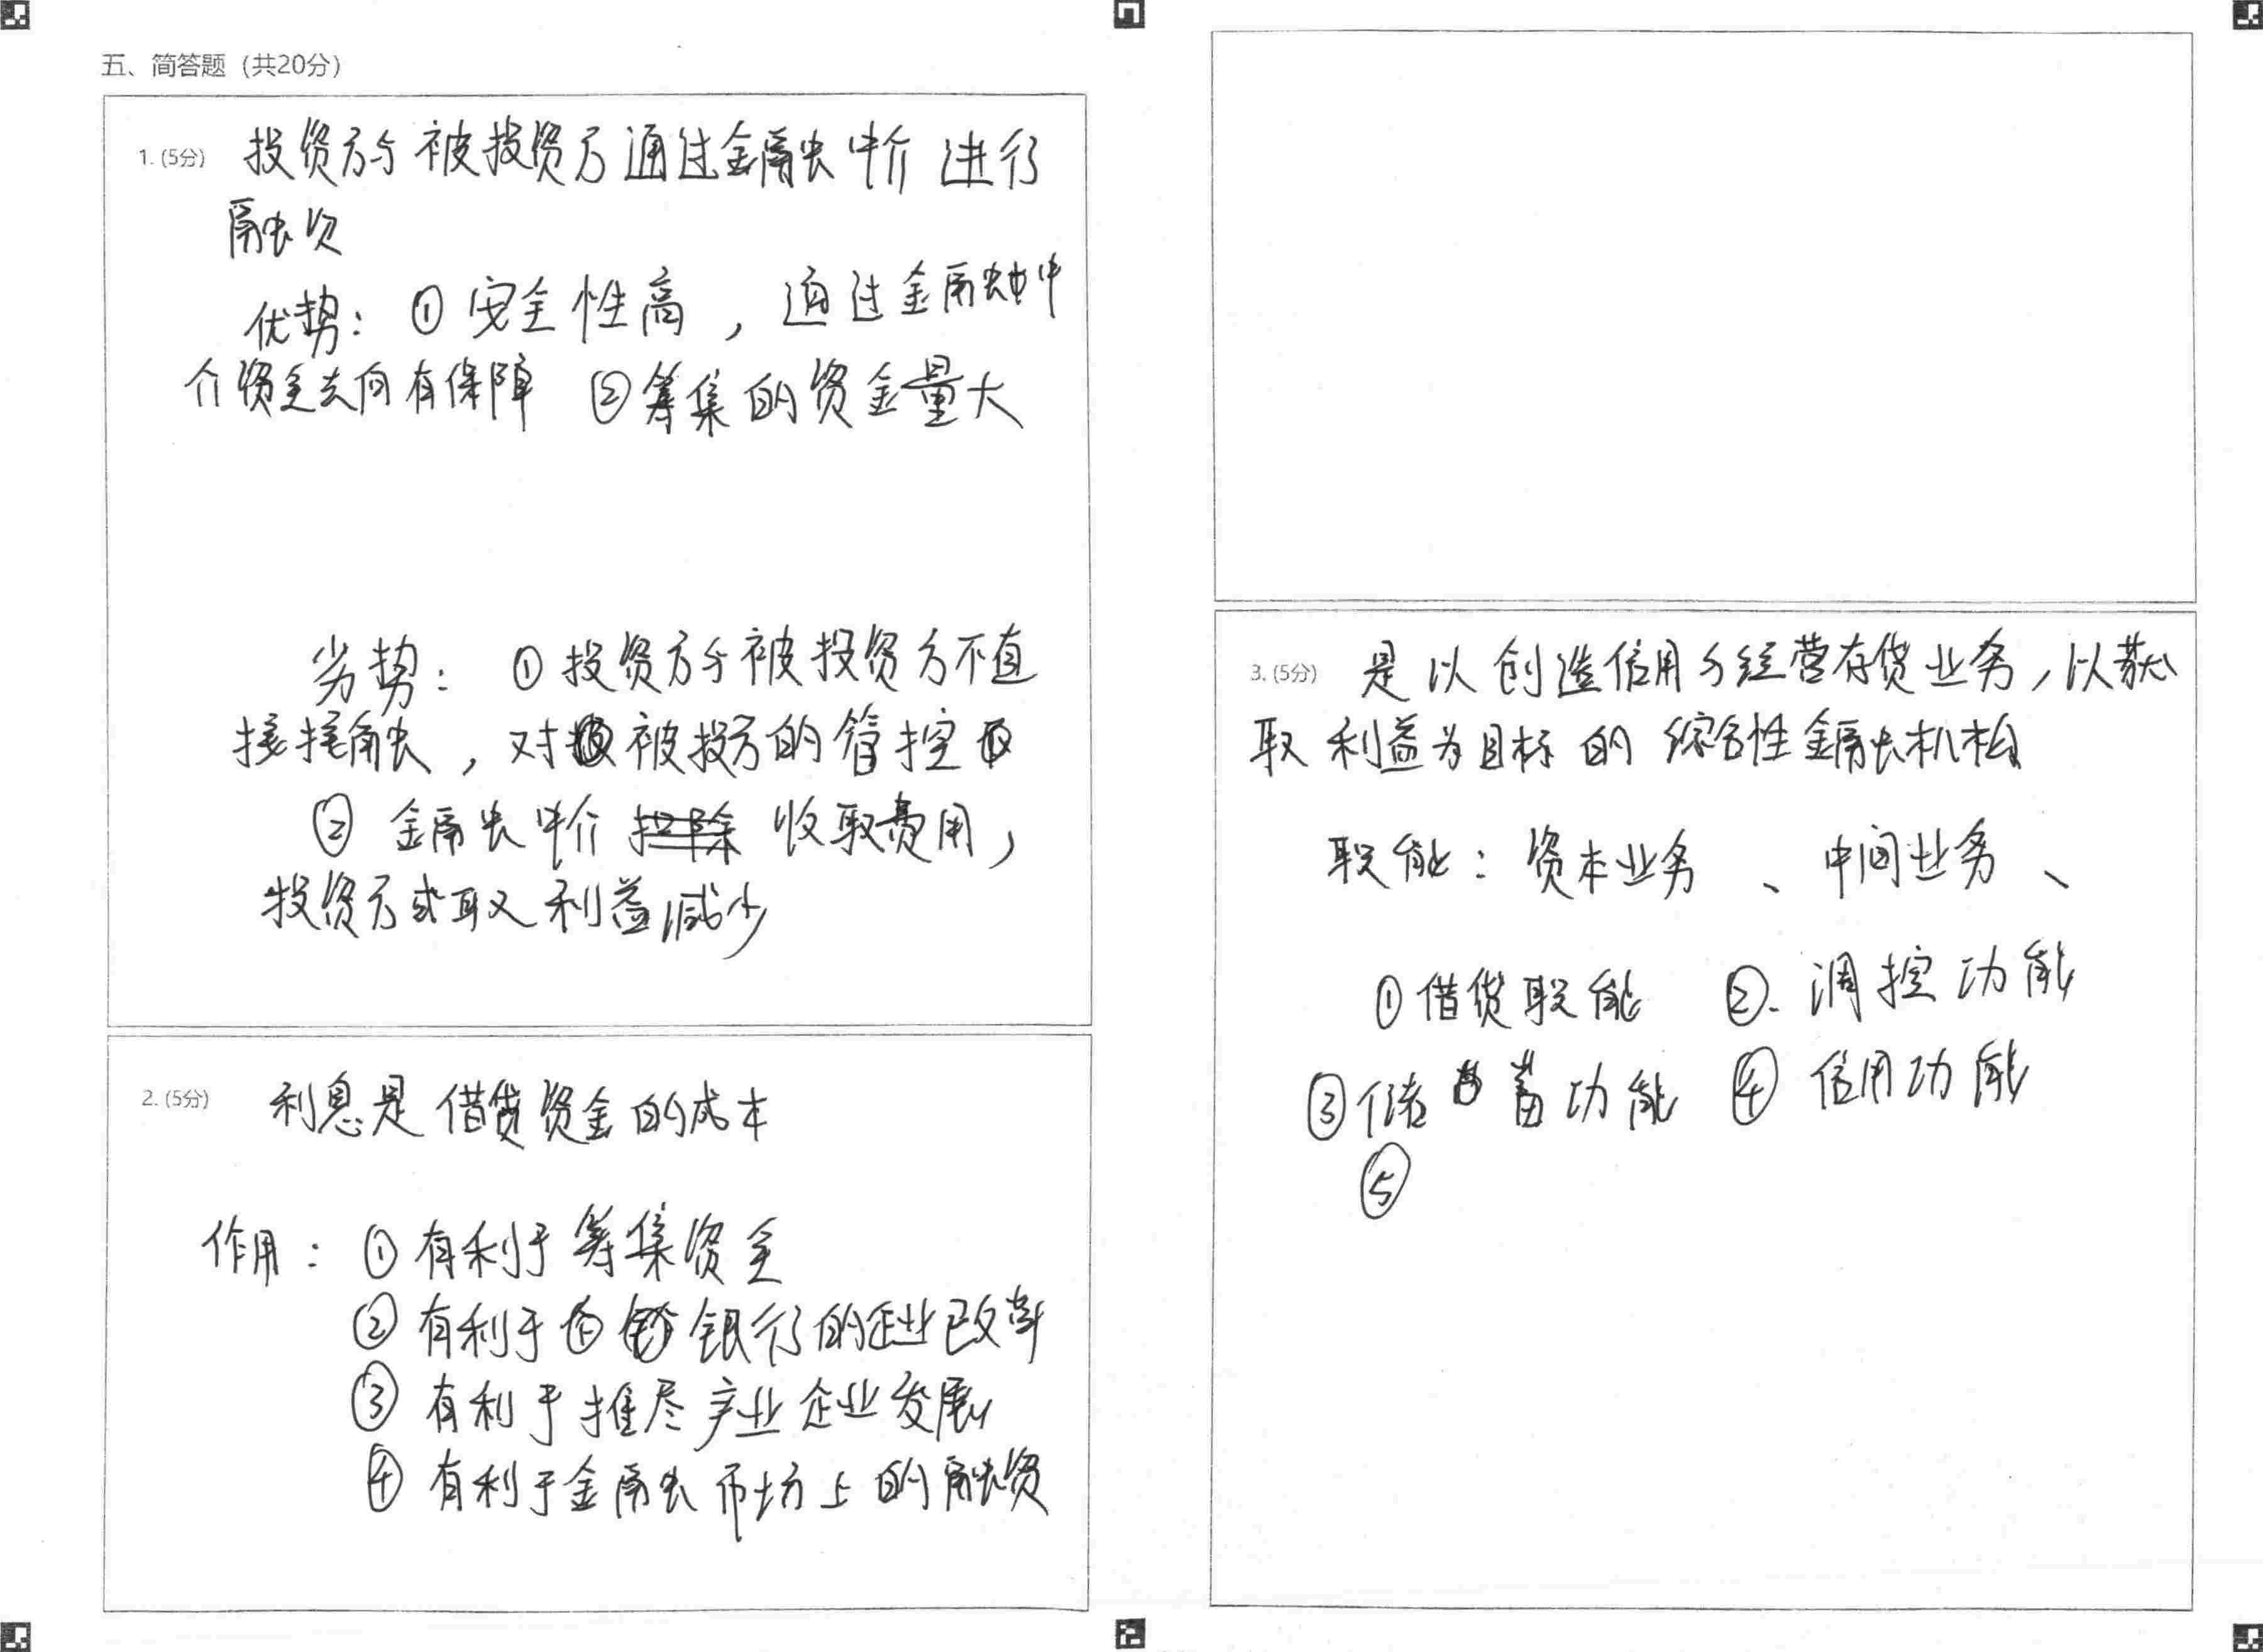 五、简答题（共20分）
1. (5分) 投资方与被投资方通过金融中介进行
融资
优势：①安全性高，通过金融中
介资金去向有保障 ②筹集的资金量大
劣势：①投资方与被投资方不直
接接触，对被投方的管控
② 金融中介 收取费用，
投资方或取利益减少
2. (5分) 利息是借贷资金的成本
作用：①有利于筹集资金
②有利于银行的企业改革
③有利于推尽产业企业发展
④有利于金融市场上的融资
3. (5分) 是以创造信用与经营存贷业务，以获
取利益为目标的综合性金融机构
职能：资本业务、中间业务、
①借贷职能 ②.调控功能
③储蓄功能 ④信用功能
⑤